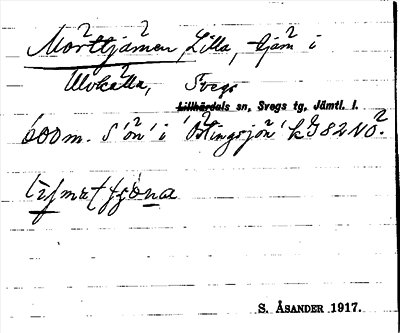 Mörttjärnen, Lilla, tjärn i
Ulvkälla, Svegs
Lillhärdals sn, Svegs tg, Jämtl. l.
600 m. S om i Östingsjön kg 82 NO.
S. ÅSANDER 1917.